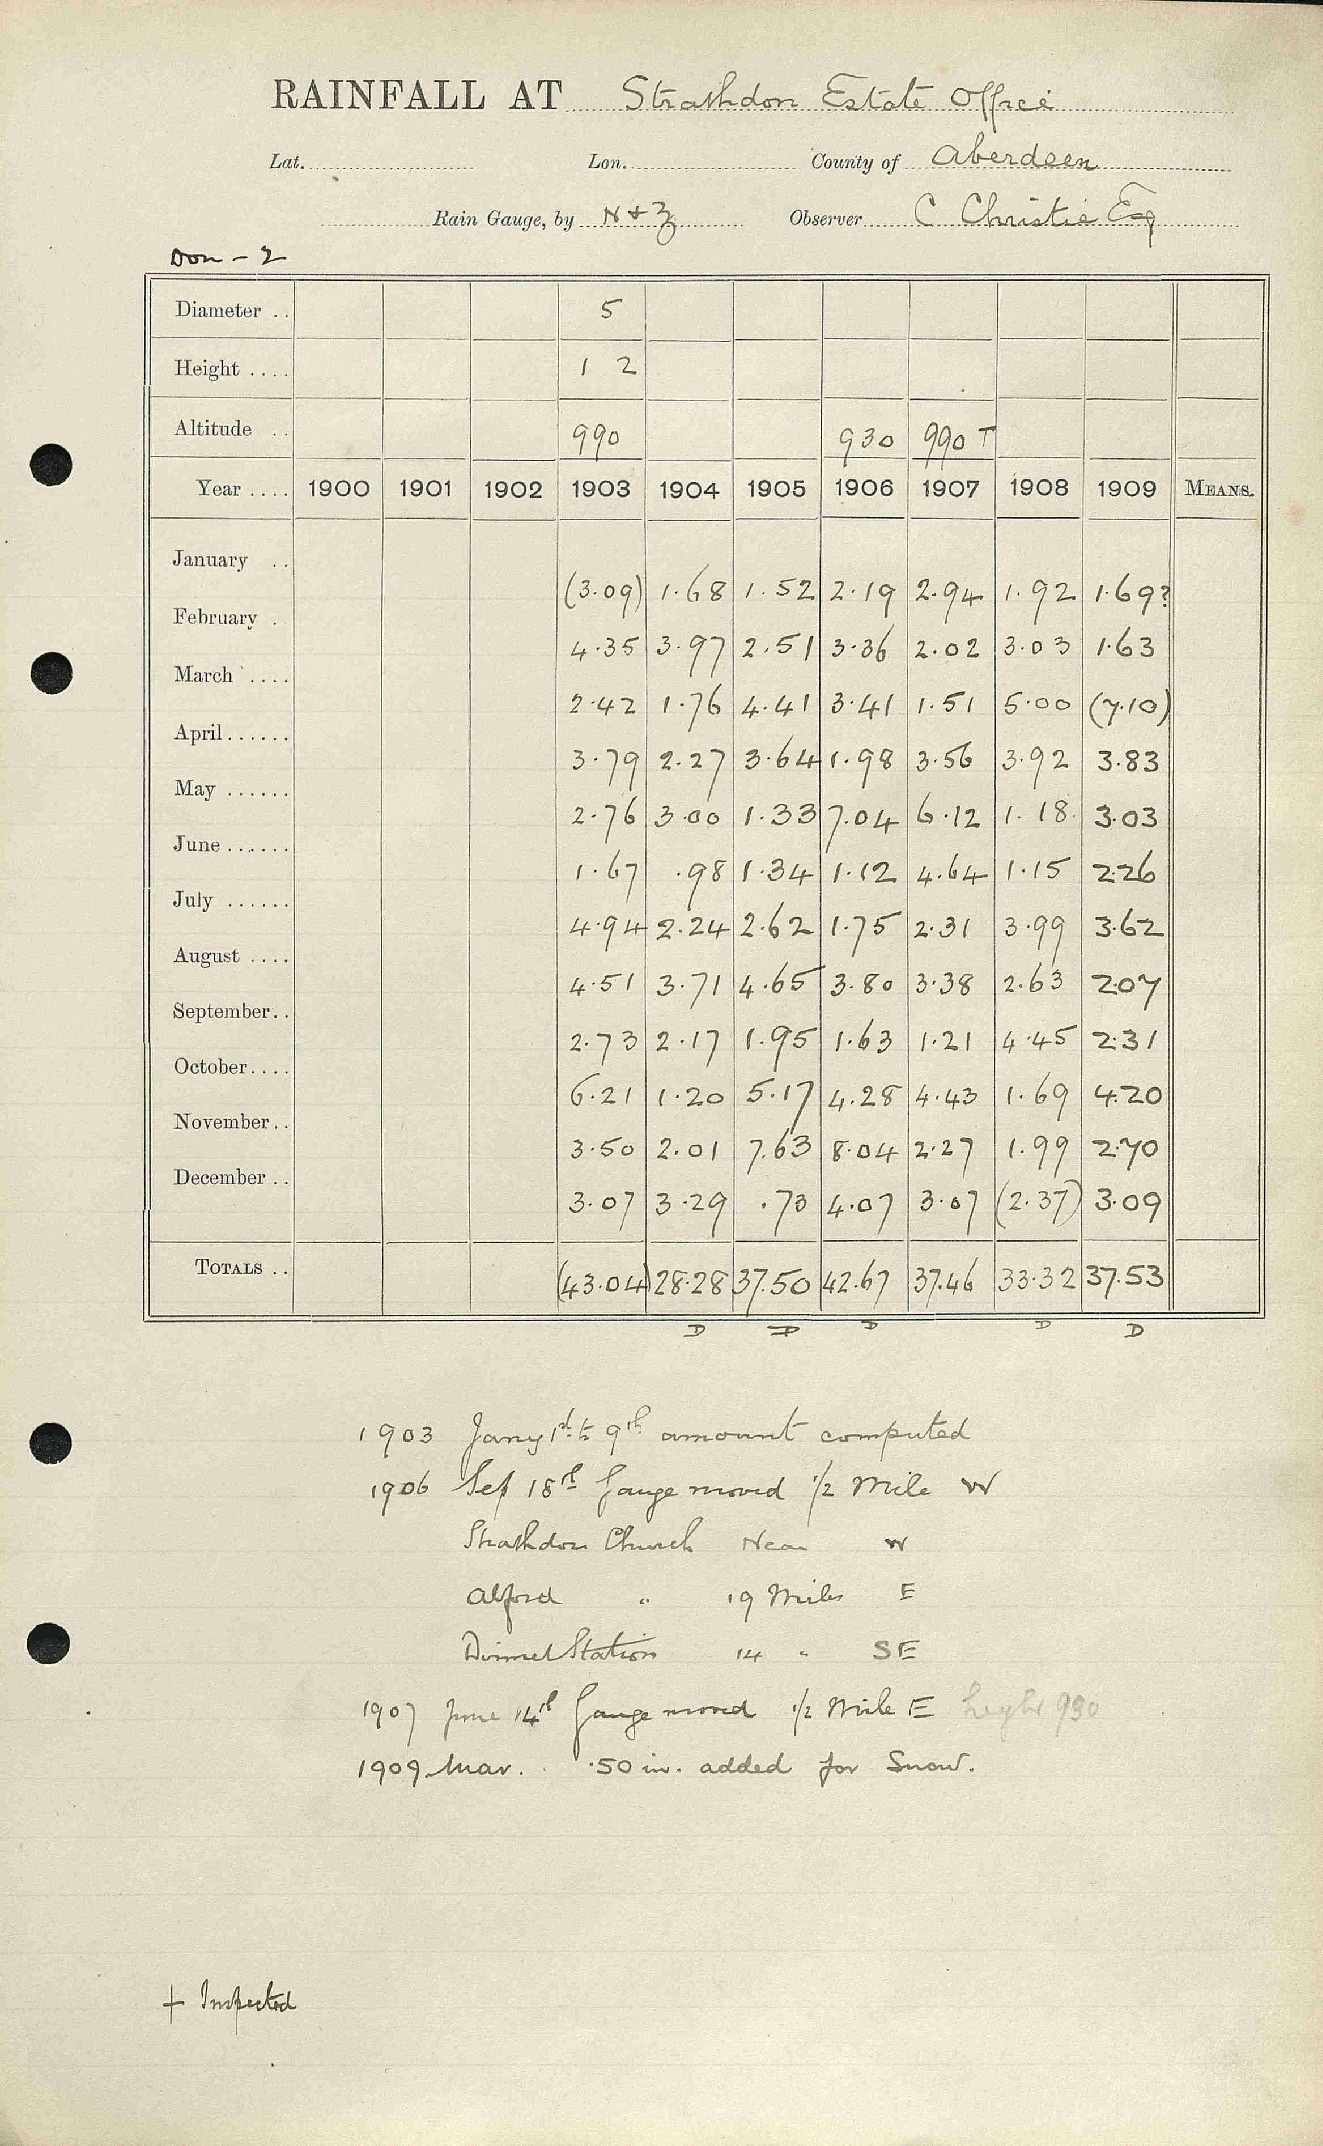 RAINFALL AT Strathdon Estate Office
Lat. Lon. County of Aberdeen
Rain Gauge, by N & Z Observer C Christie Esq
Don - 2
Diameter .. 5
Height .... 1 2
Altitude .. 990 930 990 T
Year .... 1900 1901 1902 1903 1904 1905 1906 1907 1908 1909 MEANS.
January .. (3.09) 1.68 1.52 2.19 2.94 1.92 1.69?
February . 4.35 3.97 2.51 3.36 2.02 3.03 1.63
March .... 2.42 1.76 4.41 3.41 1.51 5.00 (7.10)
April...... 3.79 2.27 3.64 1.98 3.56 3.92 3.83
May ...... 2.76 3.00 1.33 7.04 6.12 1.18 3.03
June...... 1.67 .98 1.34 1.12 4.64 1.15 2.26
July ...... 4.94 2.24 2.62 1.75 2.31 3.99 3.62
August .... 4.51 3.71 4.65 3.80 3.38 2.63 2.07
September.. 2.73 2.17 1.95 1.63 1.21 4.45 2.31
October.... 6.21 1.20 5.17 4.28 4.43 1.69 4.20
November.. 3.50 2.01 7.63 8.04 2.27 1.99 2.70
December .. 3.07 3.29 .73 4.07 3.07 (2.37) 3.09
TOTALS .. (43.04) 28.28 37.50 42.67 37.46 33.32 37.53
D D D D D
1903 Jany 1st to 9th amount computed
1906 Sep 18th Gauge moved 1/2 Mile W
Strathdon Church Near W
Alford " 19 Miles E
Dinnet Station 14 " SE
1907 June 14th Gauge moved 1/2 Mile E height 930
1909 Mar. .50 in. added for Snow.
+ Inspected